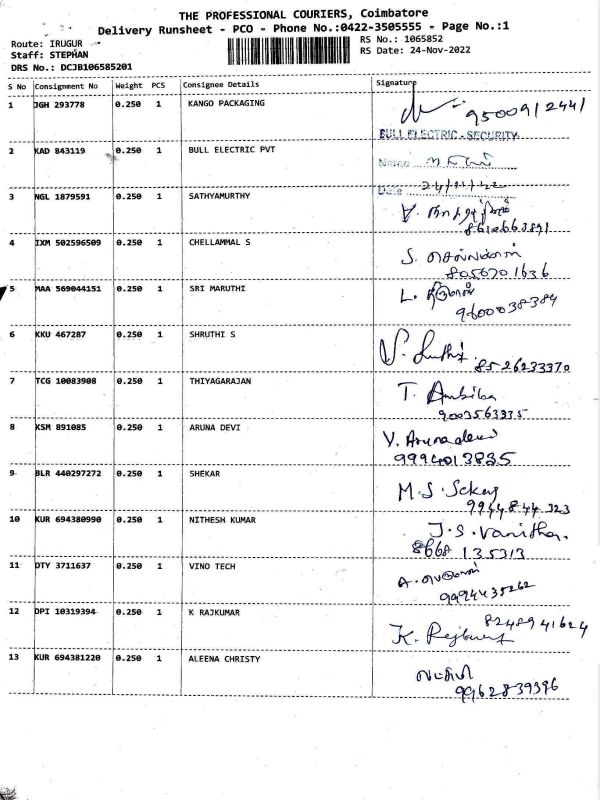 THE PROFESSIONAL COURIERS, Coimbatore
Delivery Runsheet - PCO - Phone No.:0422-3505555 - Page No.:1
Route: IRUGUR
RS No.: 1065852
Staff: STEPHAN
RS Date: 24-Nov-2022
DRS No.: DCJB106585201
S No Consignment No Weight PCS Consignee Details Signature
1 JGH 293778 0.250 1 KANGO PACKAGING 9500912441
BULL ELECTRIC - SECURITY
2 KAD 843119 0.250 1 BULL ELECTRIC PVT
Name
Date 24/11/22
3 NGL 1879591 0.250 1 SATHYAMURTHY
8610663891
4 IXM 502596509 0.250 1 CHELLAMMAL S S. செல்லம்மாள்
8056701636
5 MAA 569044151 0.250 1 SRI MARUTHI L.
9600038384
6 KKU 467287 0.250 1 SHRUTHI S
8526233370
7 TCG 10083908 0.250 1 THIYAGARAJAN T. Ambika
9003563335
8 KSM 891085 0.250 1 ARUNA DEVI V. Arunadevi
9994013835
9 BLR 440297272 0.250 1 SHEKAR M.S. Sekar
9944844323
10 KUR 694380990 0.250 1 NITHESH KUMAR J.S. Vanitha
8668 135313
11 DTY 3711637 0.250 1 VINO TECH A.
9994435262
12 DPI 10319394 0.250 1 K RAJKUMAR 8248941624
K. Rajkumar
13 KUR 694381220 0.250 1 ALEENA CHRISTY
9962839396